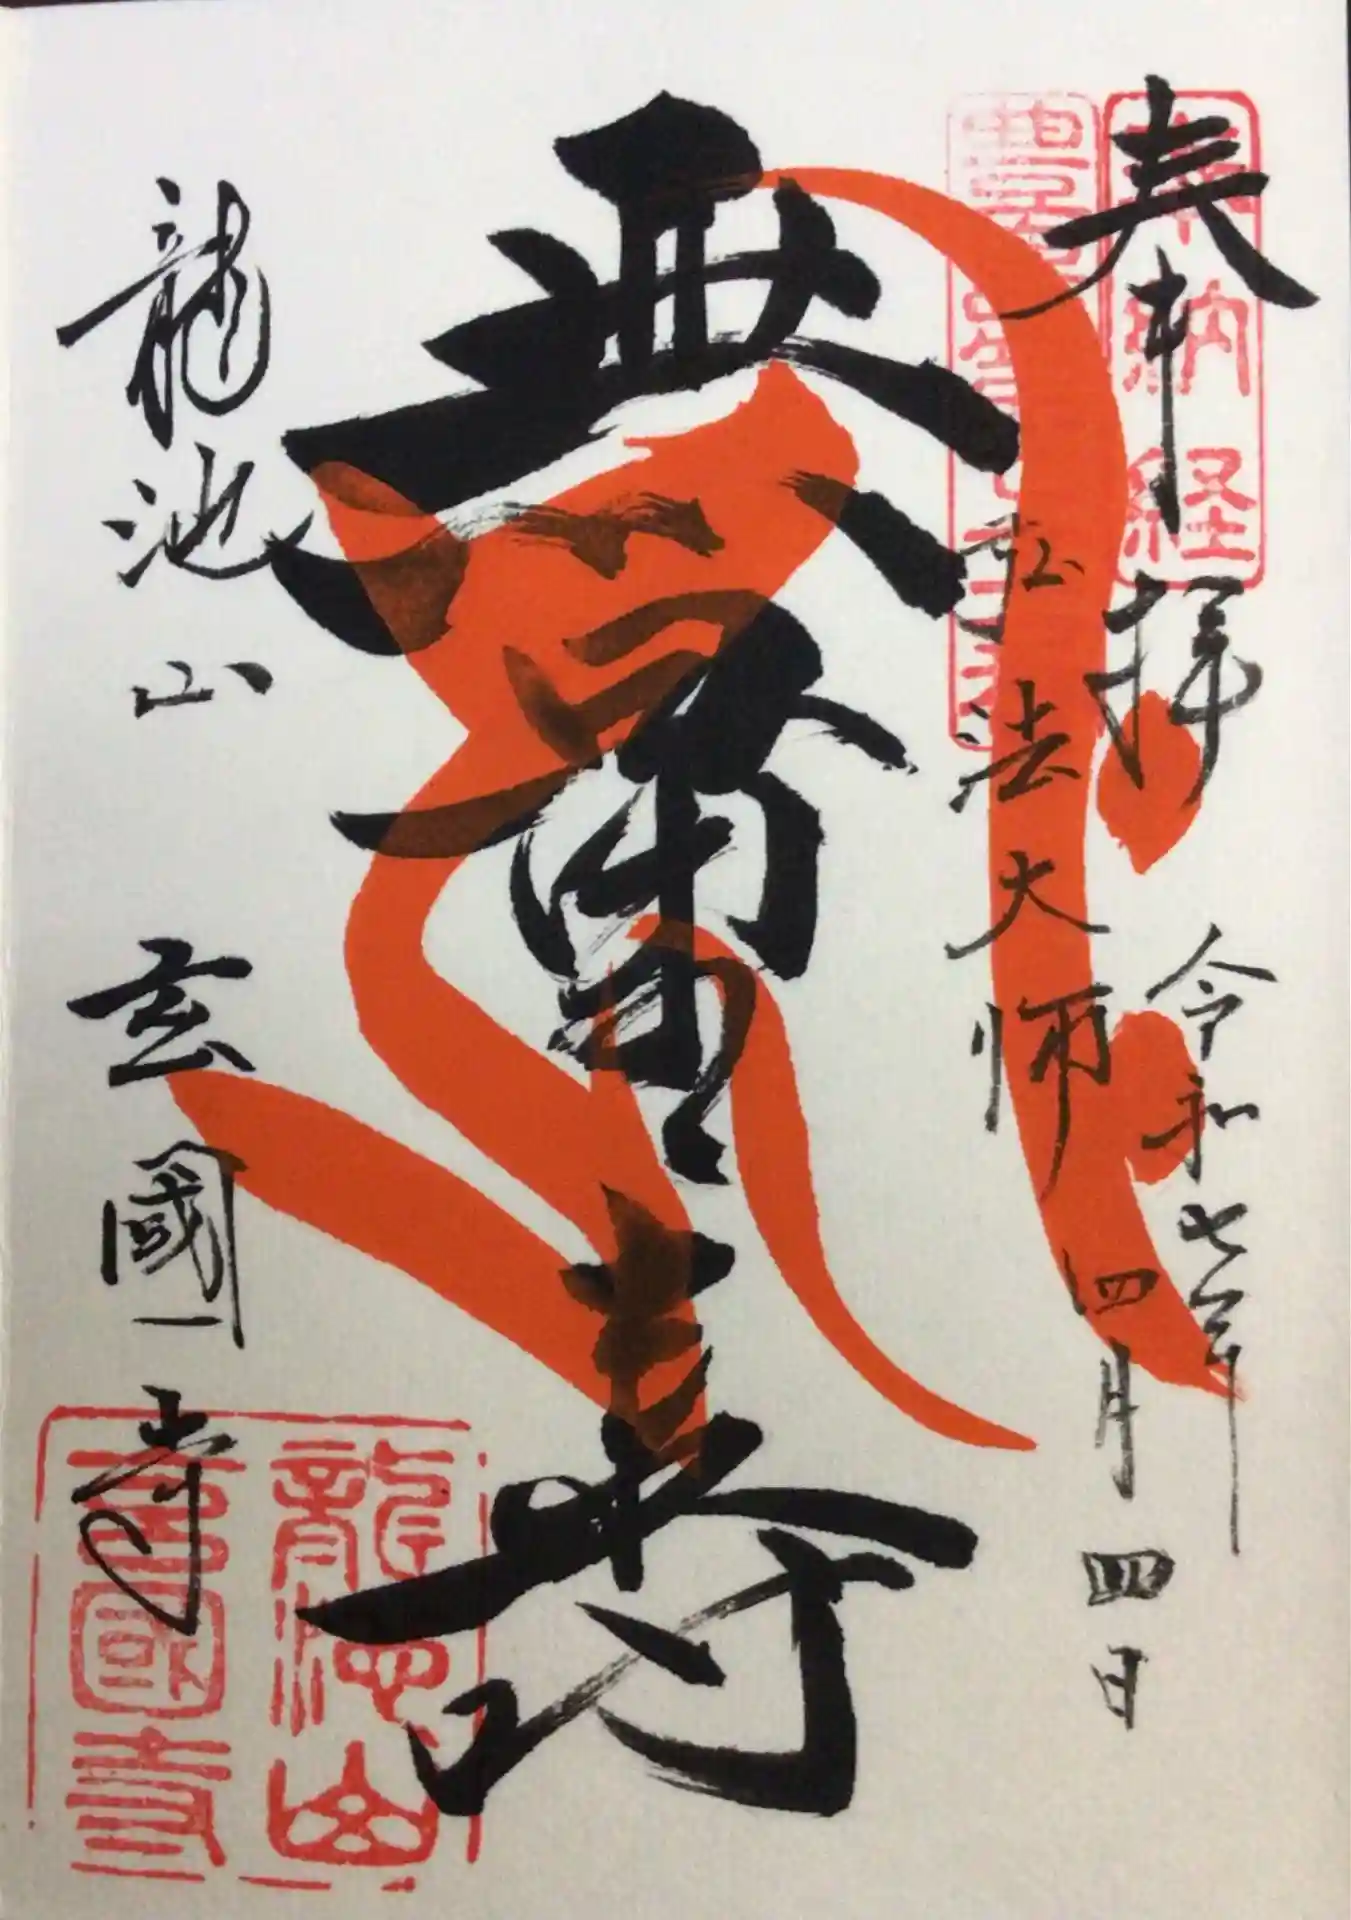 奉拝
令和七年
四月四日
奉納経
弘法大師
無量寿
龍池山
玄國寺
龍池山
玄國寺